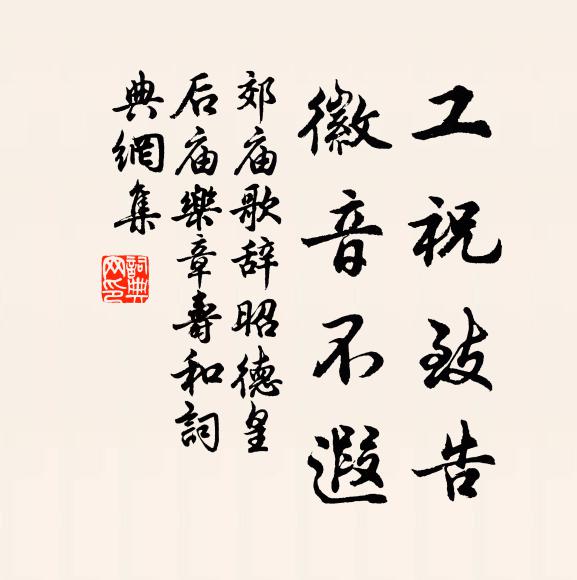 工祝致告
徽音不遐
郊庙歌辞昭德皇
后庙樂章壽和詞
典網集
詞典網印